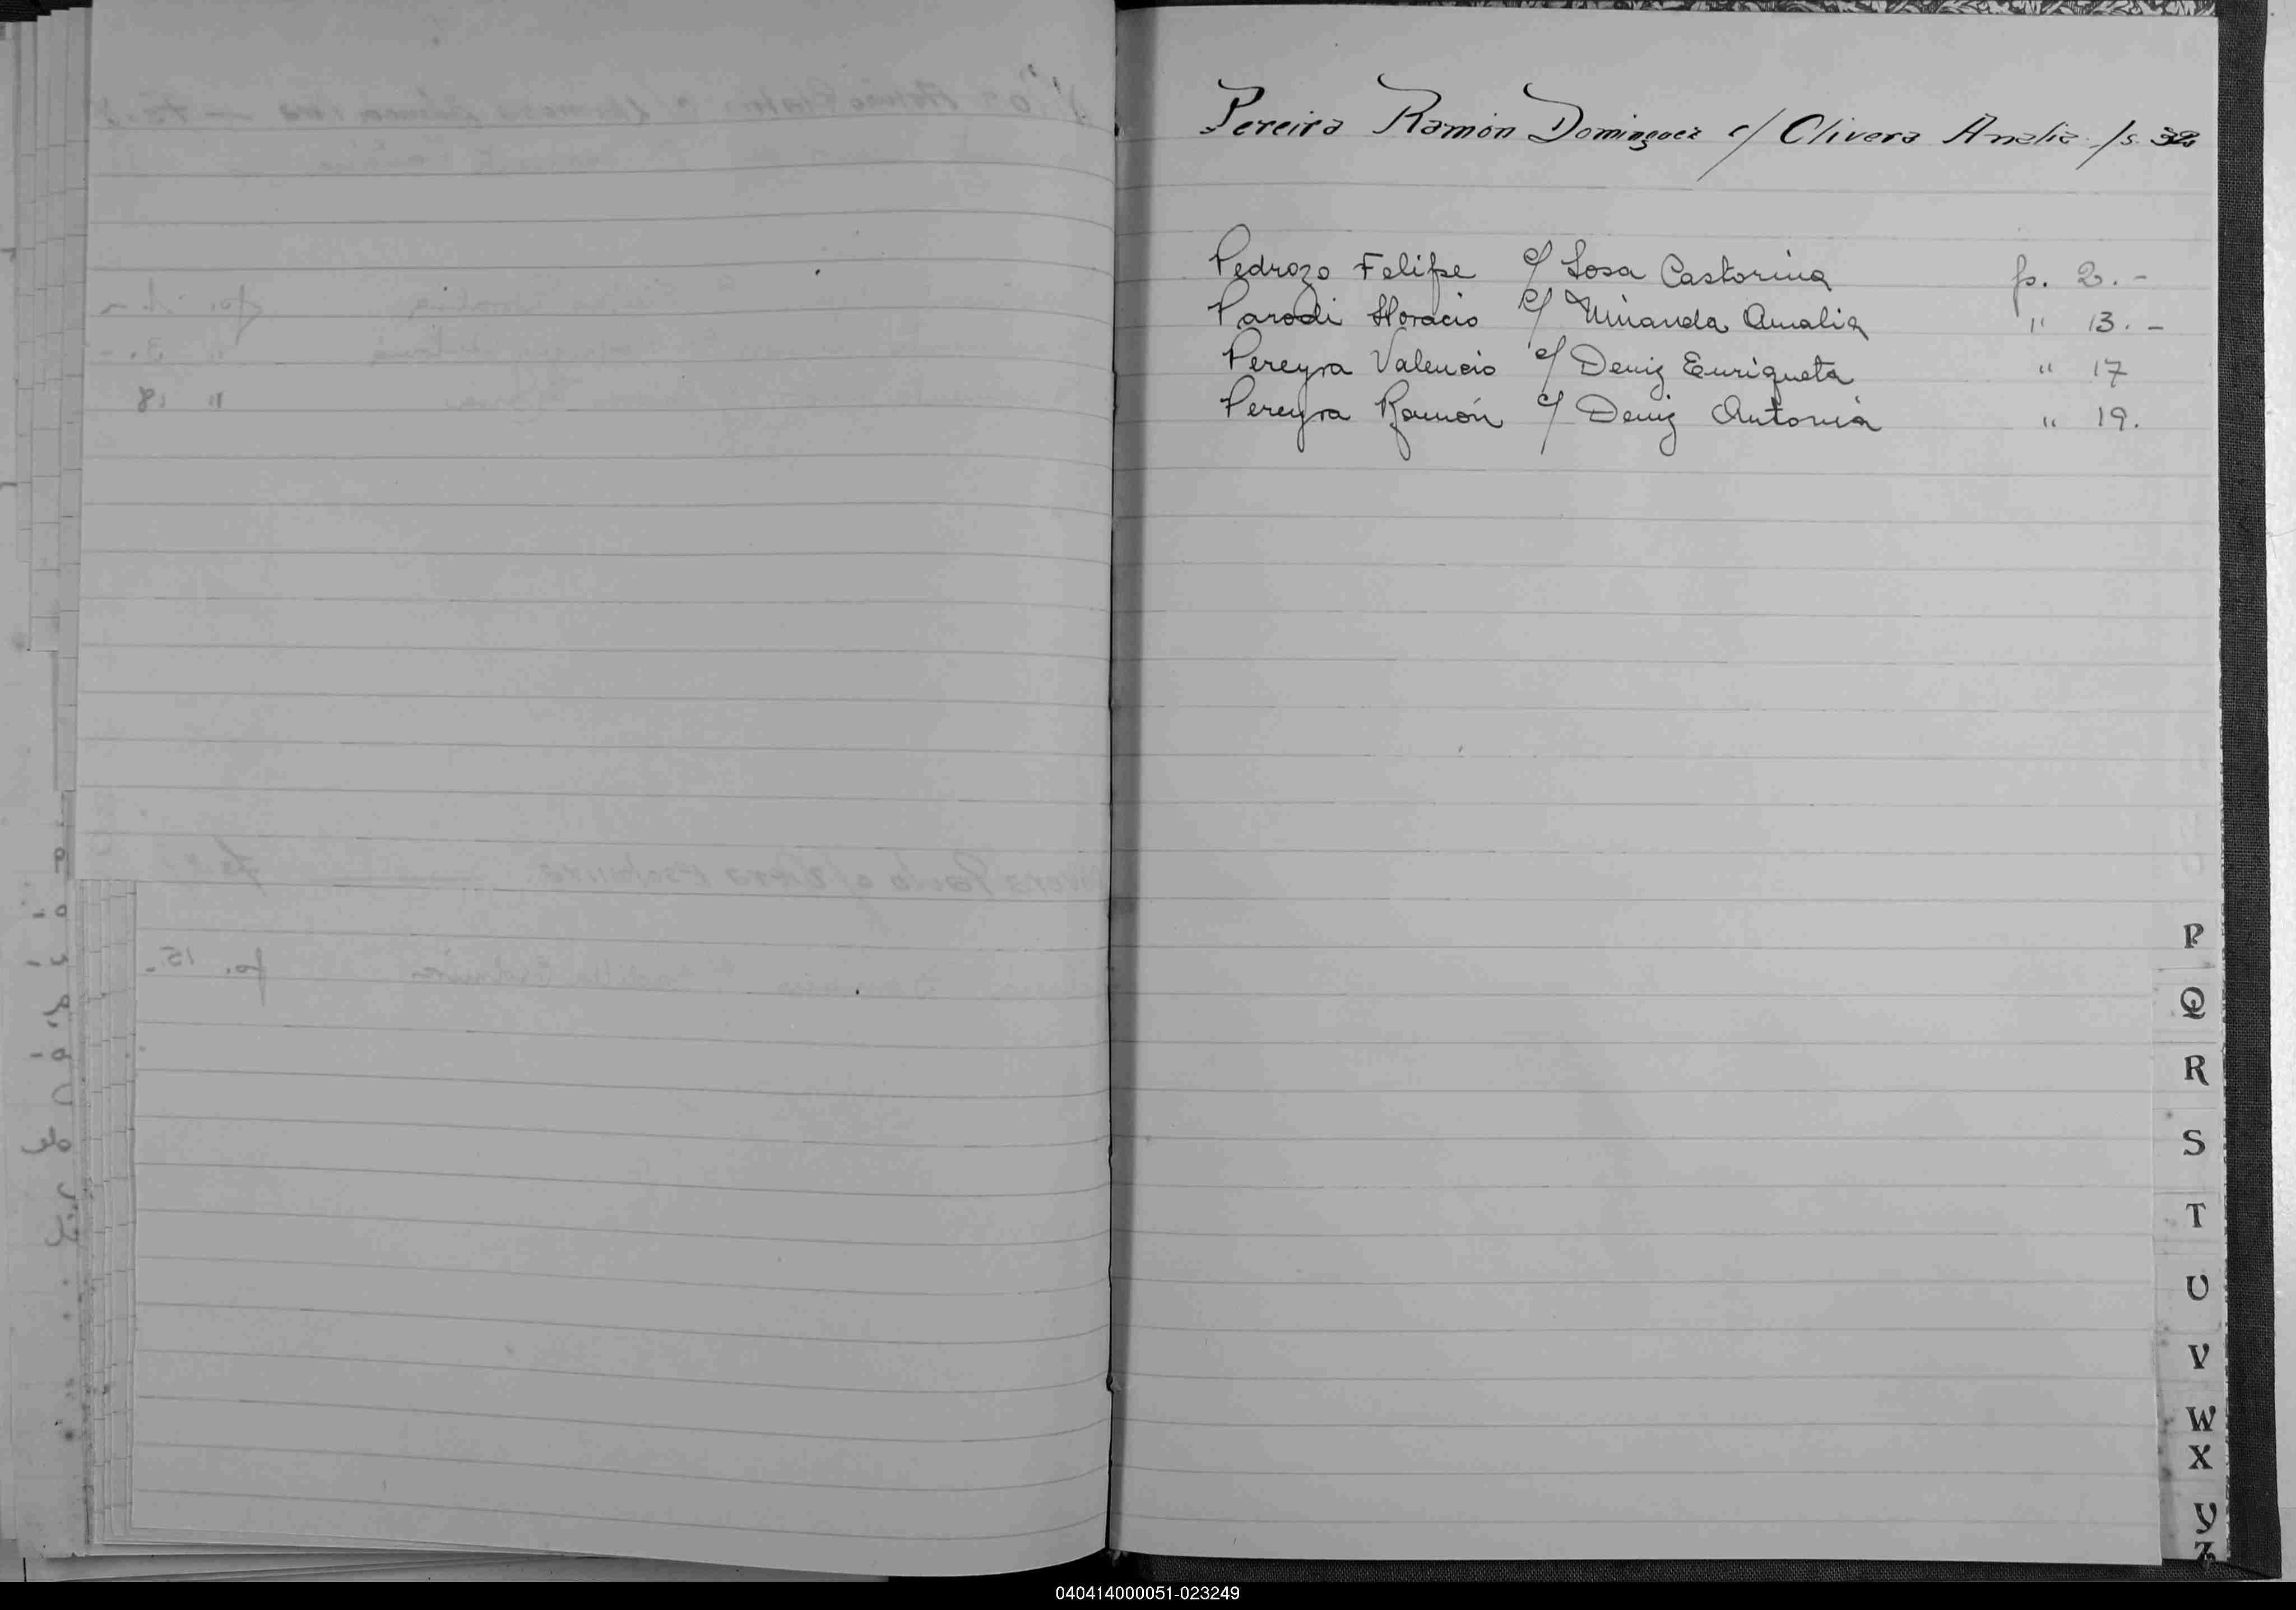 Pereira Ramón Dominguez c/ Olivera Analia fs. 32
Pedrozo Felipe c/ Sosa Castorina fs. 2.-
Parodi Horacio c/ Miranda Amalia " 13.-
Pereyra Valencio c/ Deniz Enriqueta " 17
Pereyra Ramón c/ Deniz Antonia " 19.
P
Q
R
S
T
U
V
W
X
Y
Z
040414000051-023249